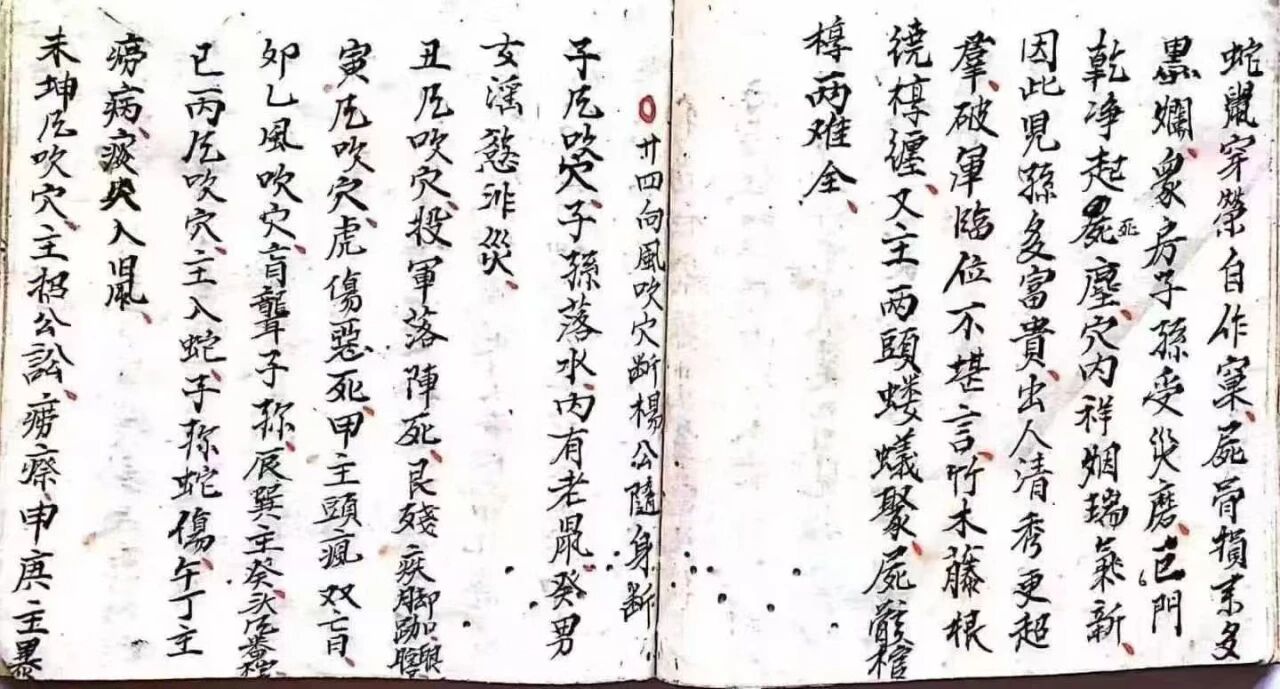 蛇鼠穿榮自作窠、屍骨損耒多
黑爛、衆房子孫受災磨、巨門
乾净起屍死塵、穴内祥烟瑞氣新、
因此兒孫多富貴、出人清秀更超
羣、破軍臨位不堪言、竹木藤根
繞椁纏、又主兩頭螻蟻聚、屍骸棺
椁两难全、
廿四向風吹穴断楊公隨身断
子凢吹穴、子孫落水、内有老鼠、癸男
女滛慾非災、
丑凢吹穴、投軍落陣死、艮殘疾脚跏
寅凢吹穴、虎傷惡死、甲主頭瘋双亡盲、
夘乙風吹穴、盲聾子孫、辰巽主癸头凢番棺
巳丙凢吹穴、主入蛇、子孫蛇傷、午丁主
癆病、痰火入旧風、
未坤凢吹穴、主招公訟、癆瘵申庚主暴